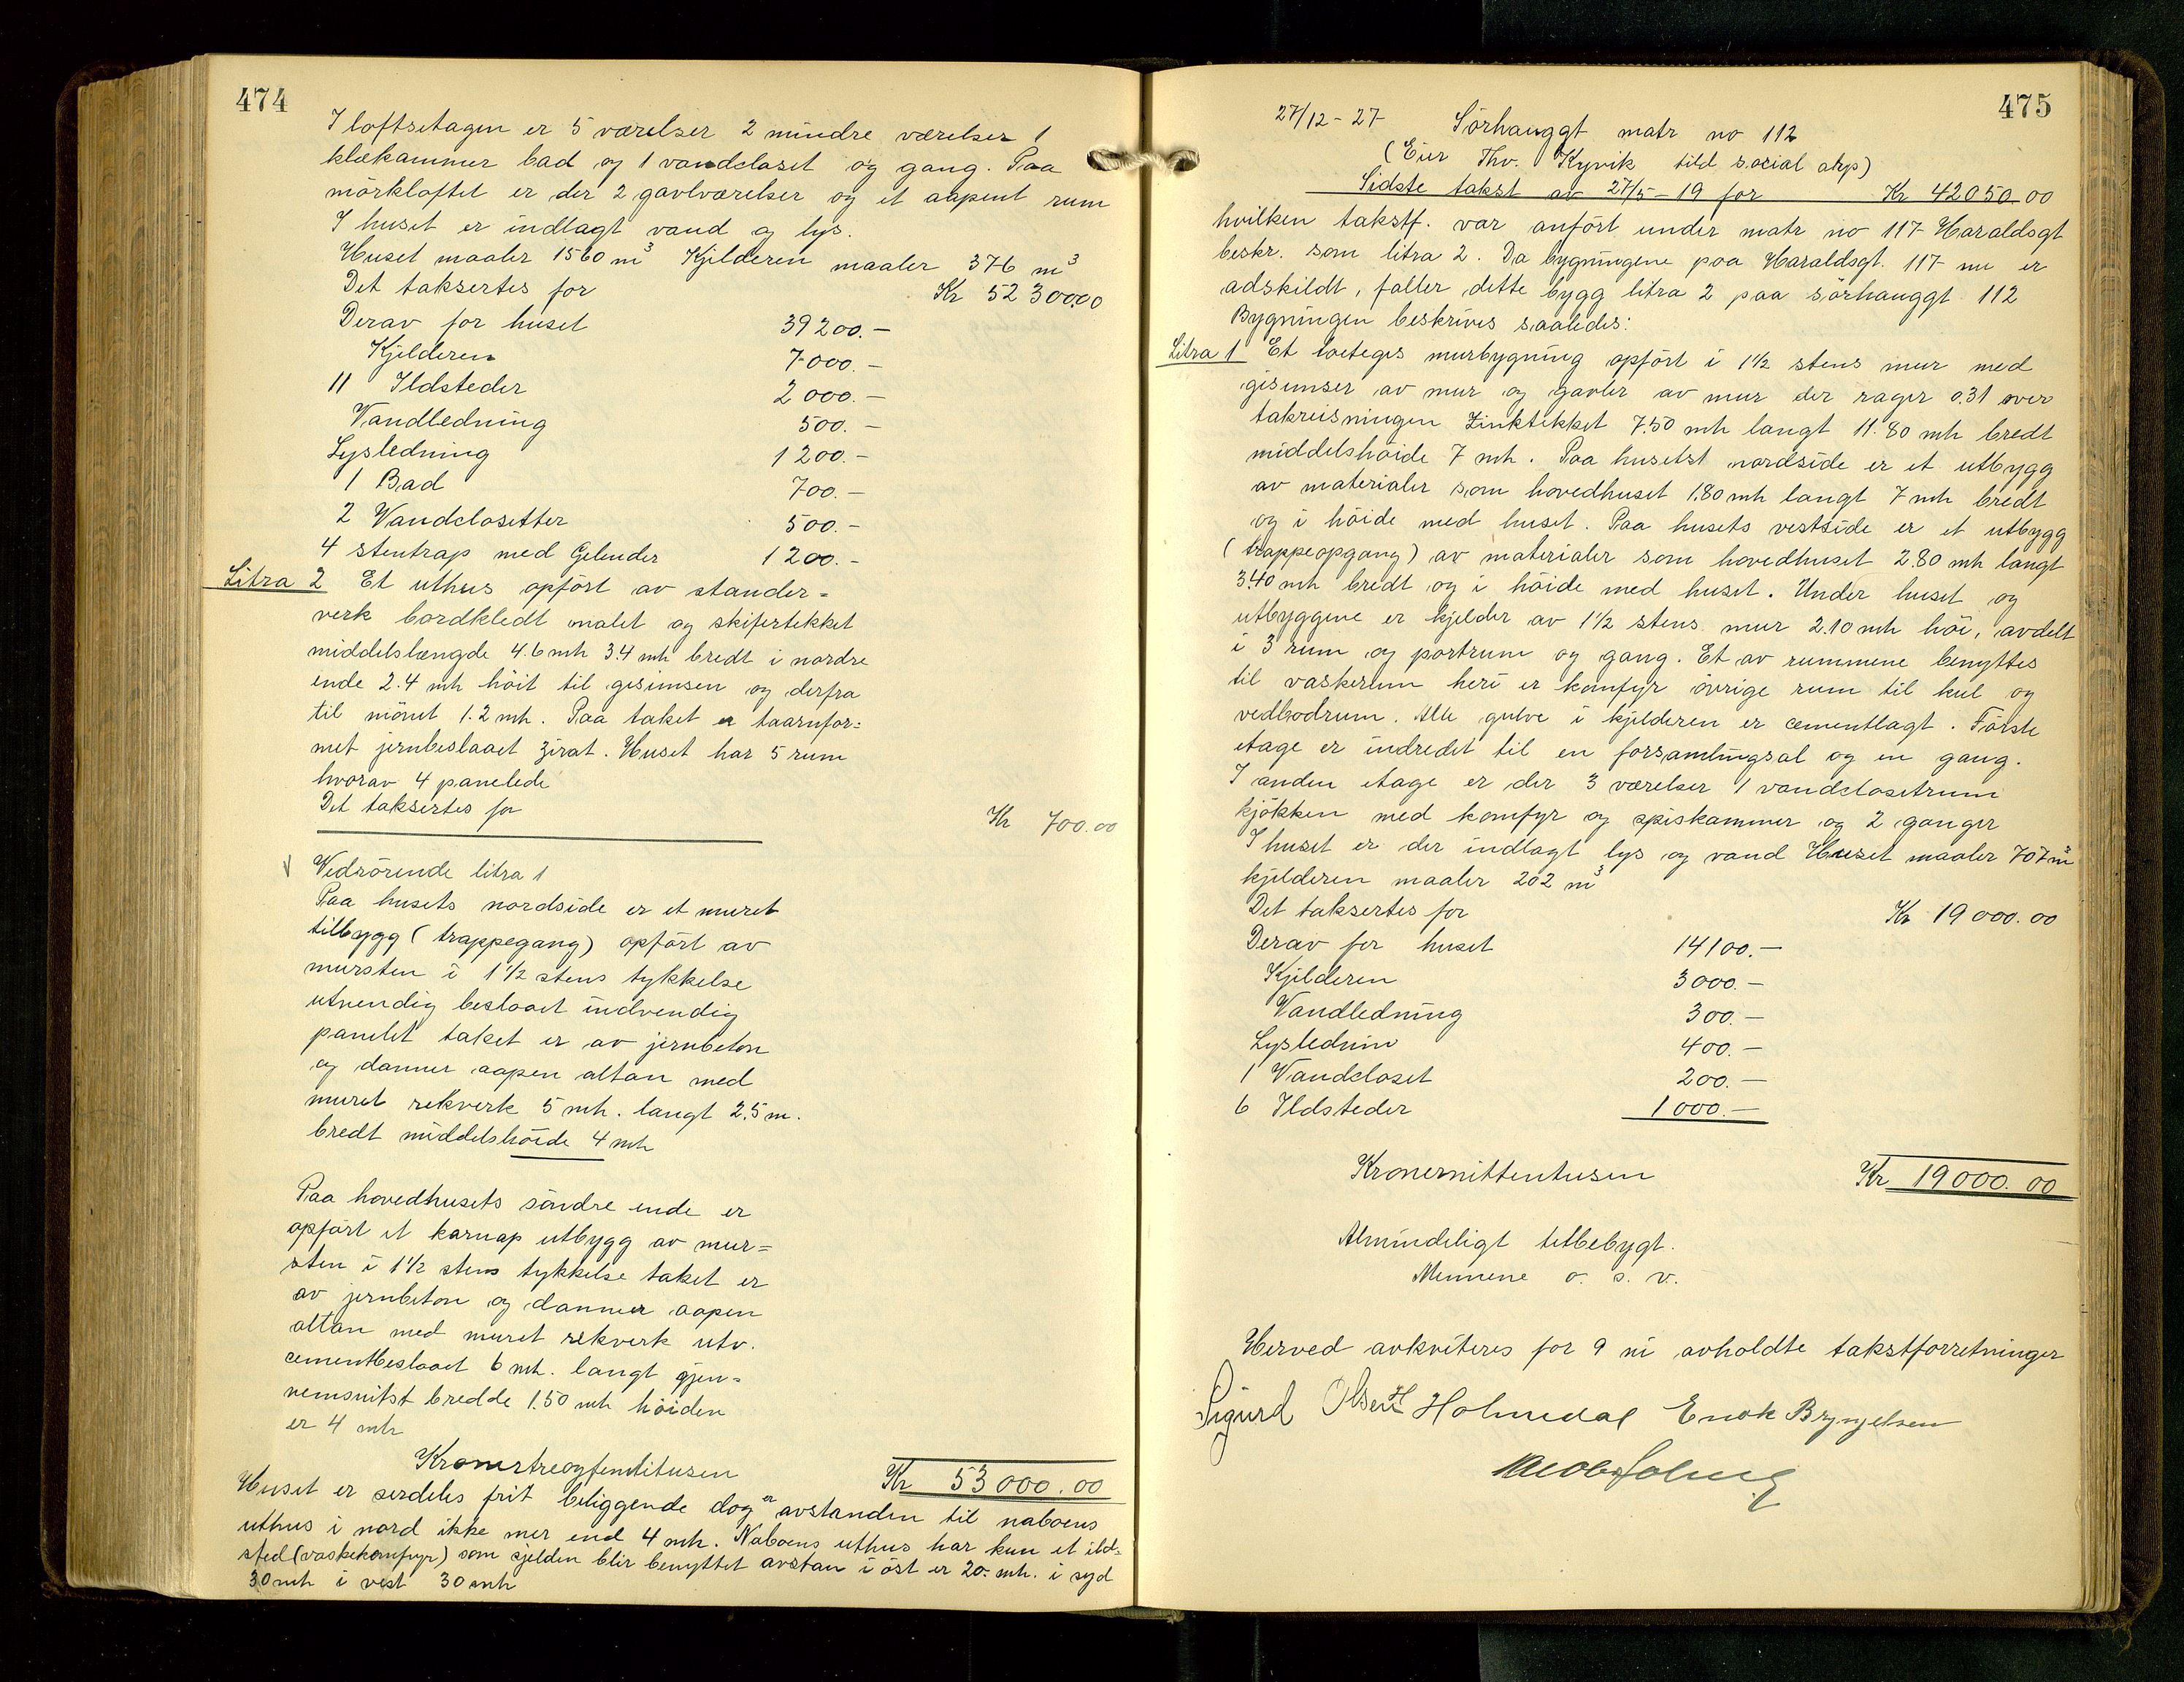 474
I loftsetagen er 5 værelser 2 mindre værelser 1
klækammer bad og 1 vandcloset og gang. Paa
mörkloftet er der 2 gavlværelser og et aapent rum
I huset er indlagt vand og lys.
Huset maaler 1560 m³ Kjelderen maaler 376 m³
Det taksertes for Kr 52300.00
Derav for huset 39200.-
Kjelderen 7000.-
11 Ildsteder 2000.-
Vandledning 500.-
Lysledning 1200.-
1 Bad 700.-
2 Vandclosetter 500.-
4 stentrap med Gelender 1200.-
Litra 2 Et uthus opfört av stander=
verk bordkledt malet og skifertekket
middelslængde 4.6 mh 3.4 mh bredt i nordre
ende 2.4 mh höit til gesimsen og derfra
til mönet 1.2 mh. Paa taket er taarnfor=
met jernbeslaaet zirat. Huset har 5 rum
hvorav 4 panelede
Det taksertes for Kr 700.00
Vedrörende litra 1
Paa husets nordside er et muret
tilbygg (trappegang) opfört av
mursten i 1½ stens tykkelse
utvendig beslaaet indvendig
panelet taket er av jernbeton
og danner aapen altan med
muret rekverk 5 mh. langt 2.5 m.
bredt middelshöide 4 mh
Paa hovedhusets söndre ende er
opfört et karnap utbygg av mur=
sten i 1½ stens tykkelse taket er
av jernbeton og danner aapen
altan med muret rekverk utv.
cementbeslaaet 6 mh. langt gjen=
nemsnitst bredde 1.50 mh höiden
er 4 mh
Kronertreogfemtitusen Kr 53000.00
Huset er serdeles frit beliggende dog er avstanden til naboens
uthus i nord ikke mer end 4 mh. Naboens uthus har kun et ild=
sted (vaskekomfyr) som sjelden blir benyttet avstan i öst er 20 mh. i syd
30 mh i vest 30 mh
475
27/12-27 Sörhauggt matr no 112
(Eier Thv. Kyvik tild social akp)
Sidste takst av 27/5-19 for Kr 42050.00
hvilken takstf. var anfört under matr no 117 Haraldsgt
beskr. som litra 2. Da bygningene paa Haraldsgt. 117 nu er
adskildt, faller dette bygg litra 2 paa sörhauggt 112
Bygningen beskrives saaledes:
Litra 1 Et toeteges murbygning opfört i 1½ stens mur med
gisimser av mur og gavler av mur der rager 0.31 over
takreisningen Zinktekket 7.50 mh langt 11.80 mh bredt
middelshöide 7 mh. Paa husetst nordside er et utbygg
av materialer som hovedhuset 1.80 mh langt 7 mh bredt
og i höide med huset. Paa husets vestside er et utbygg
(trappeopgang) av materialer som hovedhuset 2.80 mh langt
3.40 mh bredt og i höide med huset. Under huset og
utbyggene er kjelder av 1½ stens mur 2.10 mh höi, avdelt
i 3 rum og portrum og gang. Et av rummene benyttes
til vaskerum heri er komfyr övrige rum til kul og
vedbodrum. Alle gulve i kjelderen er cementlagt. Förste
etage er indredet til en forsamlingsal og en gang.
I anden etage er der 3 værelser 1 vandclosetrum
kjökken med komfyr og spiskammer og 2 ganger
I huset er der indlagt lys og vand Huset maaler 707 m³
kjelderen maaler 202 m³
Det taksertes for Kr 19000.00
Derav for huset 14100.-
Kjelderen 3000.-
Vandledning 300.-
Lyslednin 400.-
1 Vandcloset 200.-
6 Ildsteder 1000.-
Kronernittentusen Kr 19000.00
Almindeligt tetbebygt.
Mennene o. s. v.
Herved avkviteres for 9 ni avholdte takstforretninger
Sigurd Olsen H Holmedal Enok Brynjelsen